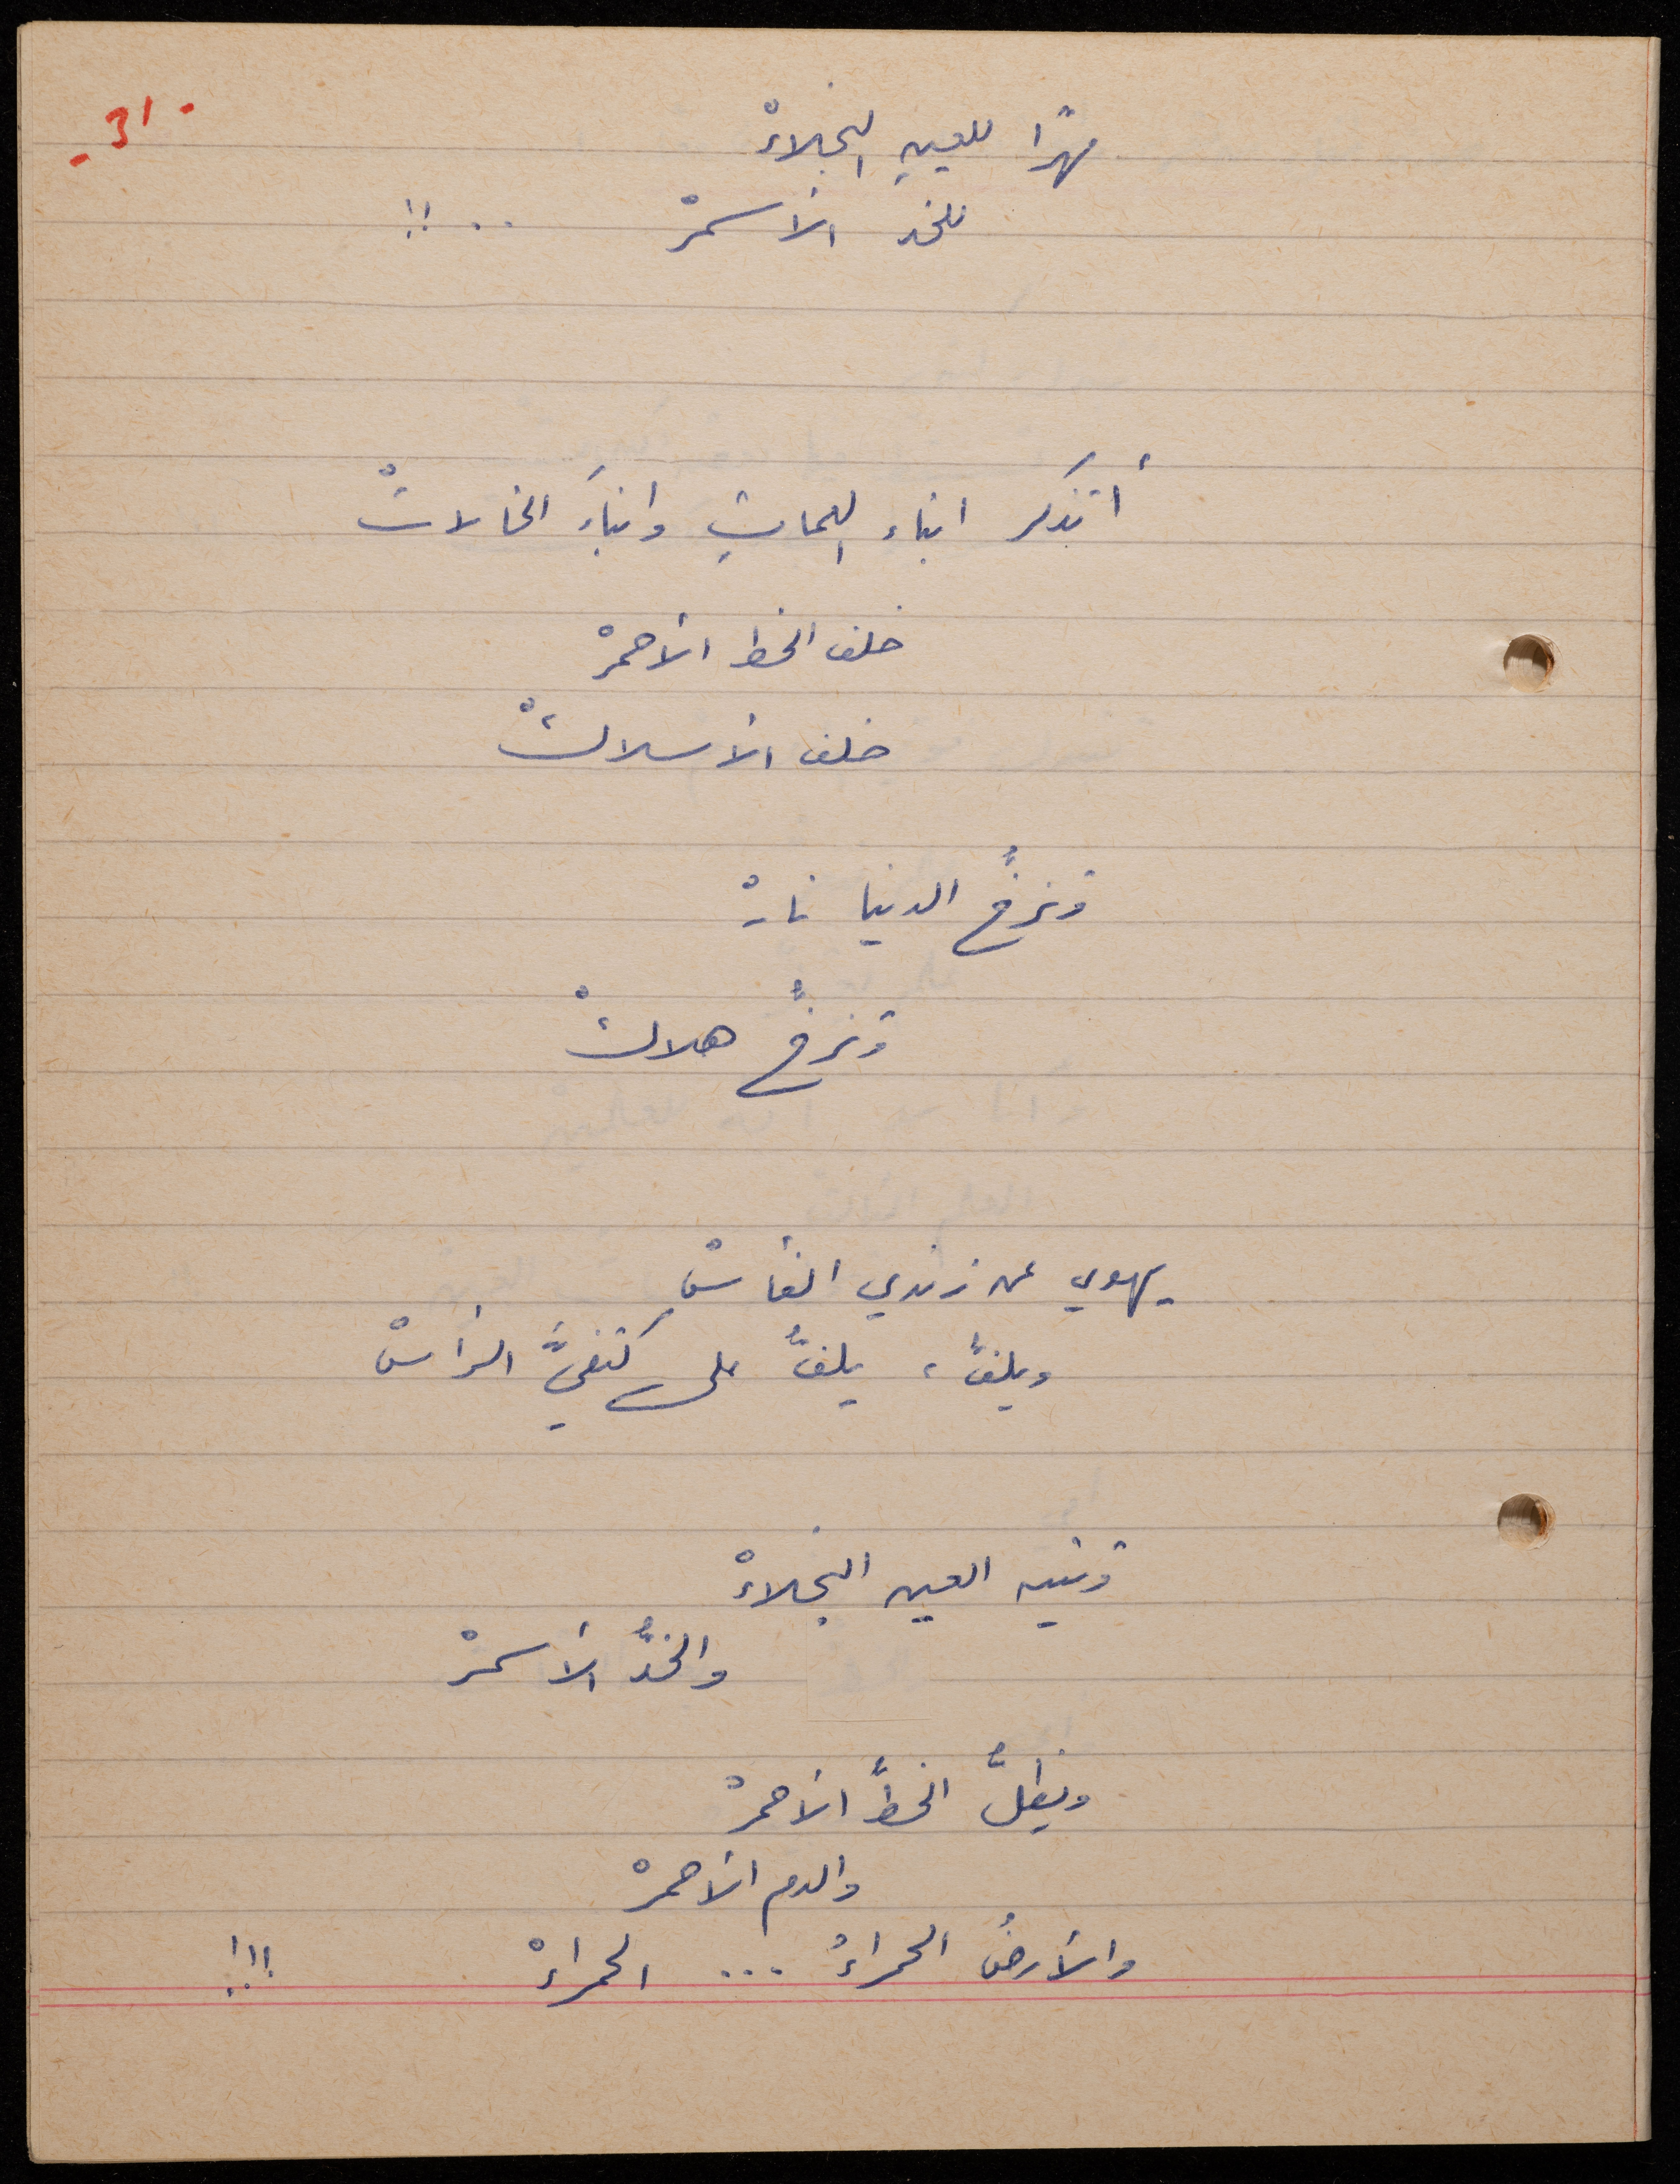 - 31 -
مهرًا للعينِ النجلاءْ
للخد الأسمرْ .. !!
أتذكر ابناء العماتِ وابناءَ الخالاتْ
خلف الخط الأحمرْ
خلف الأسلاكْ
وتزخُّ الدنيا نارْ
وتزخُّ هلاكْ
يهوي عن زندي الفأسْ
ويلفُّ ، يلفُّ على كتفيَّ الرأسْ
وتتيه العين النجلاءْ
والخدُّ الأسمرْ
ويظلُّ الخطُّ الأحمرْ
والدم الأحمرْ
والأرضُ الحمراءُ ... الحمراءْ !!!